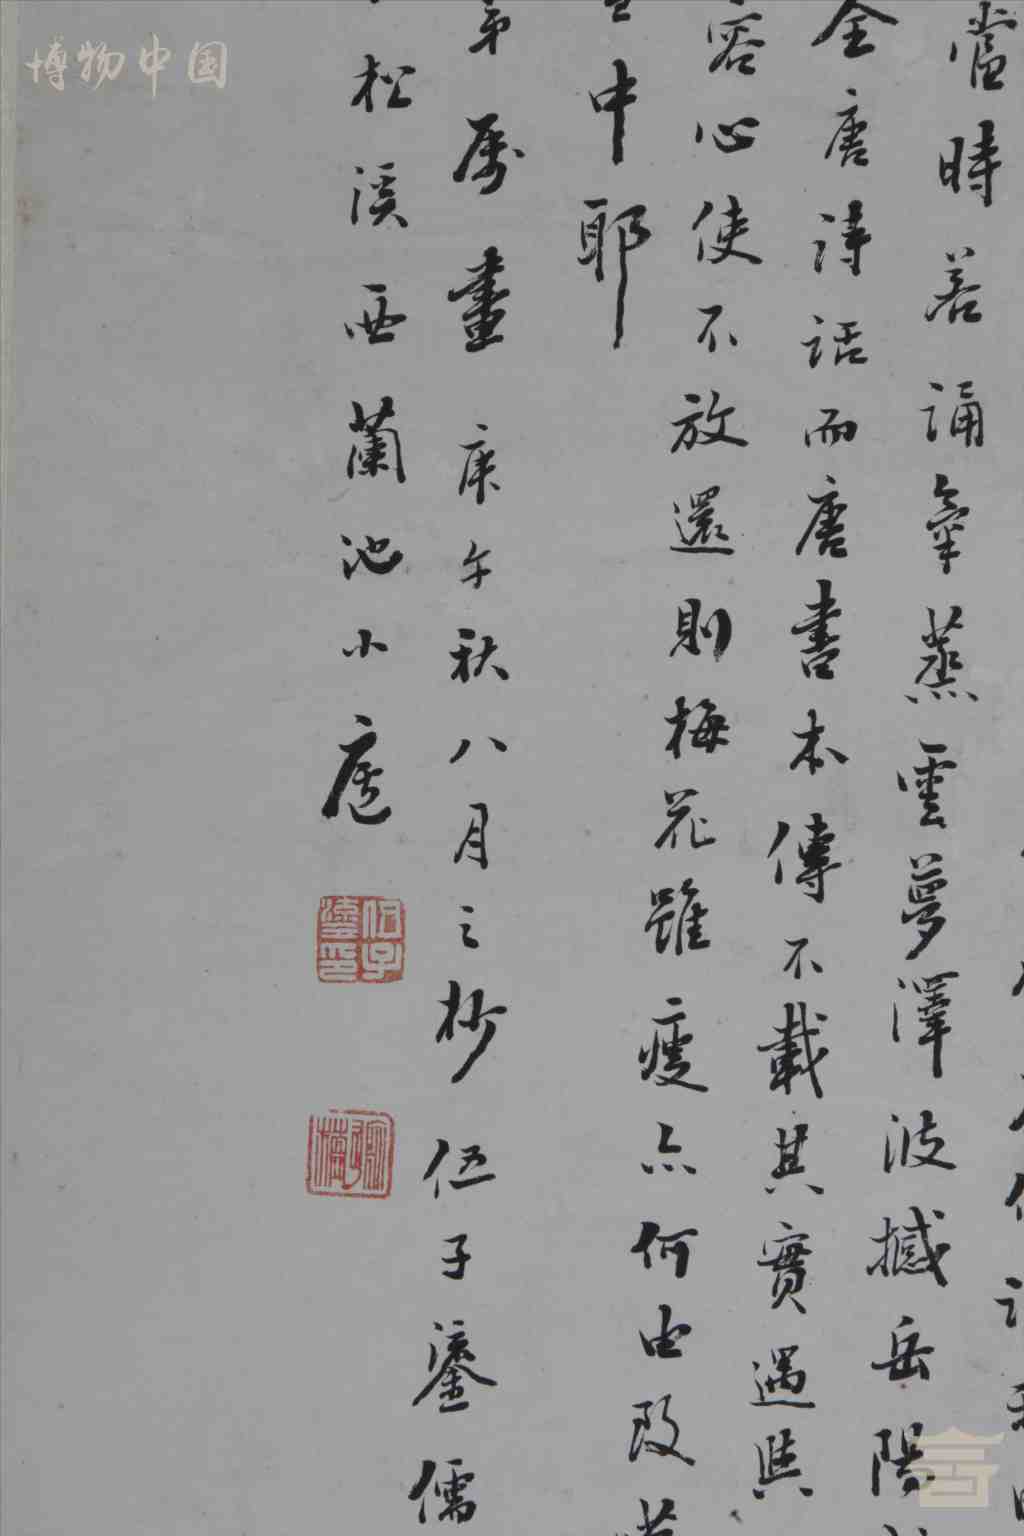 博物中国
當時若誦氣蒸雲夢澤波撼岳陽
全唐詩話而唐書本傳不載其實遇與
容心使不放還則梅花雖瘦亦何由改
中耶
弟屬畫 庚午秋八月之杪 伍子鎏儒
松溪西蘭池小